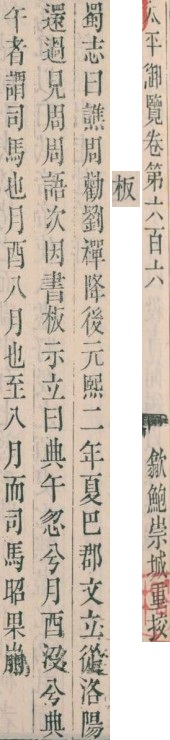 太平御覽卷第六百六　歙鮑崇城重挍
板
蜀志曰譙周勸劉禪降後元熙二年夏巴郡文立從洛陽
還過見周周語次因書板示立曰典午忽兮月酉没兮典
午者謂司馬也月酉八月也至八月而司馬昭果崩